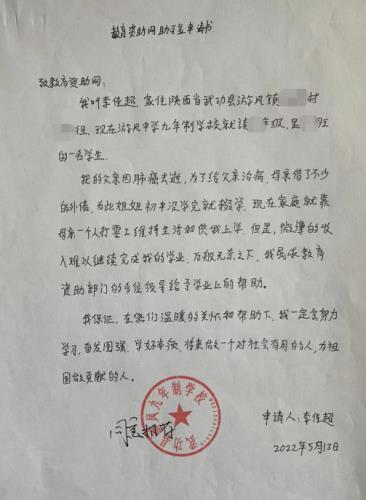 教育资助网助学金申请书
致教育资助网:
我叫李佳超,家住陕西省武功县游风镇 村
组,现在游风中学九年制学校就读 年级,是 班
的一名学生.
我的父亲因肺癌去逝,为了给父亲治病,母亲借了不少
的外债,为此姐姐初中没学完就辍学.现在家庭就靠
母亲一个人打零工维持生活和供我上学.但是,微薄的收
入难以继续完成我的学业,万般无奈之下,我恳求教育
资助部门的各位领导给予学业上的帮助.
我保证,在您们温暖的关怀和帮助下,我一定会努力
学习,奋发图强,学好本领,将来做一个对社会有用的人,为祖
国做贡献的人.
武功县 风九年制学校
申请人:李佳超
2022年5月13日